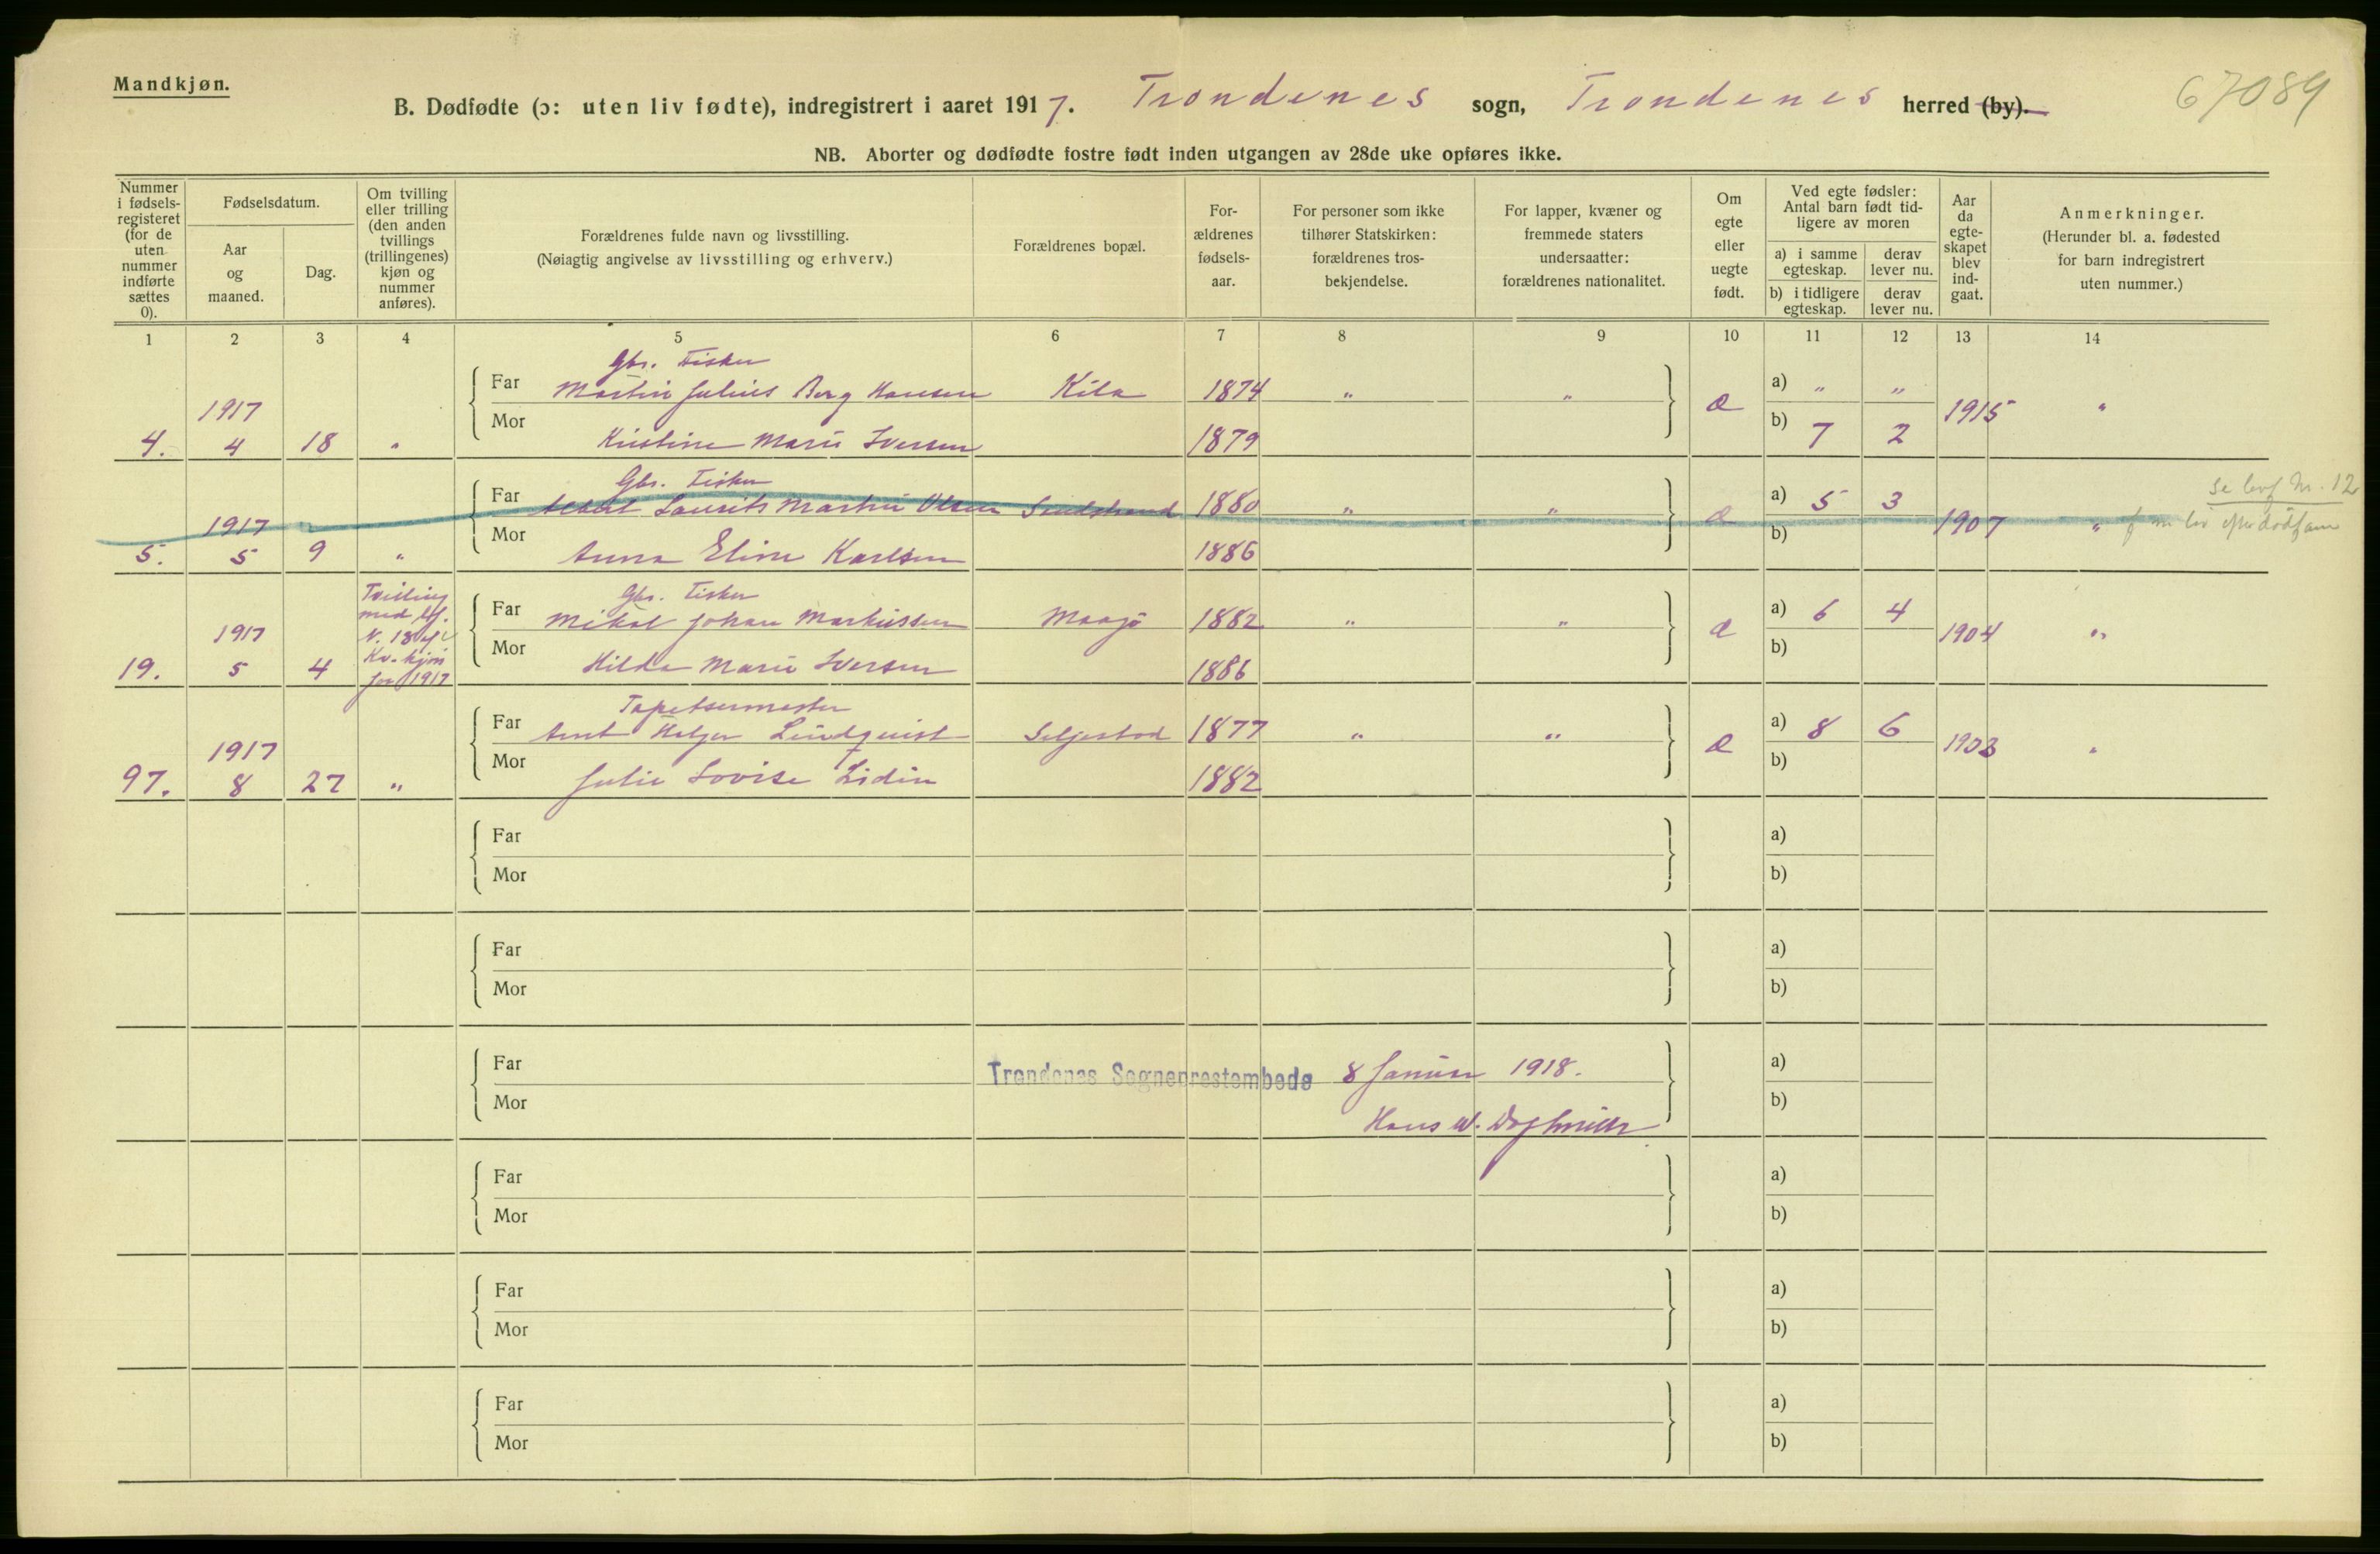 Mandkjøn.
B. Dødfødte (ɔ: uten liv fødte), indregistrert i aaret 1917. Trondenes sogn, Trondenes herred (by).
67089
NB. Aborter og dødfødte fostre født inden utgangen av 28de uke opføres ikke.
Nummer i fødsels-registeret (for de uten nummer indførte sættes 0).
Fødselsdatum.
Aar og maaned.
Dag.
Om tvilling eller trilling (den anden tvillings (trillingenes) kjøn og nummer anføres).
Forældrenes fulde navn og livsstilling.
(Nøiagtig angivelse av livsstilling og erhverv.)
Forældrenes bopæl.
For-ældrenes fødsels-aar.
For personer som ikke tilhører Statskirken: forældrenes tros-bekjendelse.
For lapper, kvæner og fremmede staters undersaatter: forældrenes nationalitet.
Om egte eller uegte født.
Ved egte fødsler: Antal barn født tid-ligere av moren
a) i samme egteskap.
derav lever nu.
b) i tidligere egteskap.
derav lever nu.
Aar da egte-skapet blev ind-gaat.
Anmerkninger.
(Herunder bl. a. fødested for barn indregistrert uten nummer.)
1 2 3 4 5 6 7 8 9 10 11 12 13 14
Gbr. Fisker
Far Martin Julius Berg Hansen Kila 1874 " " a) " "
1917 1915 "
Mor b) 7 2
4. 4 18 " Kristine Marie Iversen 1879
Gbr. Fisker
Far Albert Laurits Martin Olsen Sandstrand 1880 " " a) 5 3
se levf Nr. 12
1917 1907 "
Mor b)
5. 5 9 " Anna Eline Karlsen 1886
Tvilling med lf. N. 18 af Kv.kjøn for 1917
Gbr. Fisker
Far Mikal Johan Markussen Maagø 1882 " " a) 6 4
1917 1904 "
Mor b)
19. 5 4 Hilda Marie Iversen 1886
Tapetsermester
Far Arnt Helger Lindquist Seljestad 1877 " " a) 8 6
1917 1903 "
Mor b)
97. 8 27 " Julie Lovise Lidin 1882
Far a)
Mor b)
Far a)
Mor b)
Far Trondenes Sogneprestembede 8 Januar 1918. a)
Mor b)
Hans W.
Far a)
Mor b)
Far a)
Mor b)
Far a)
Mor b)